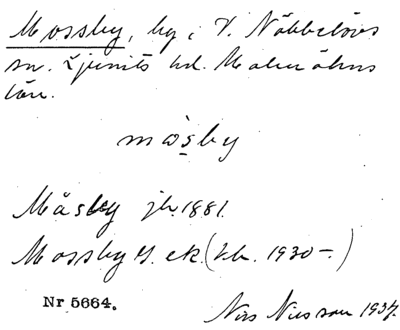 Mossby, by i V. Nöbbelövs
sn. Ljunits hd. Malmöhus
län.
mòsby
Måsby jb. 1881.
Mossby G. ek. (kb. 1930-.)
Nr 5664.
Nils Nilsson 1937.